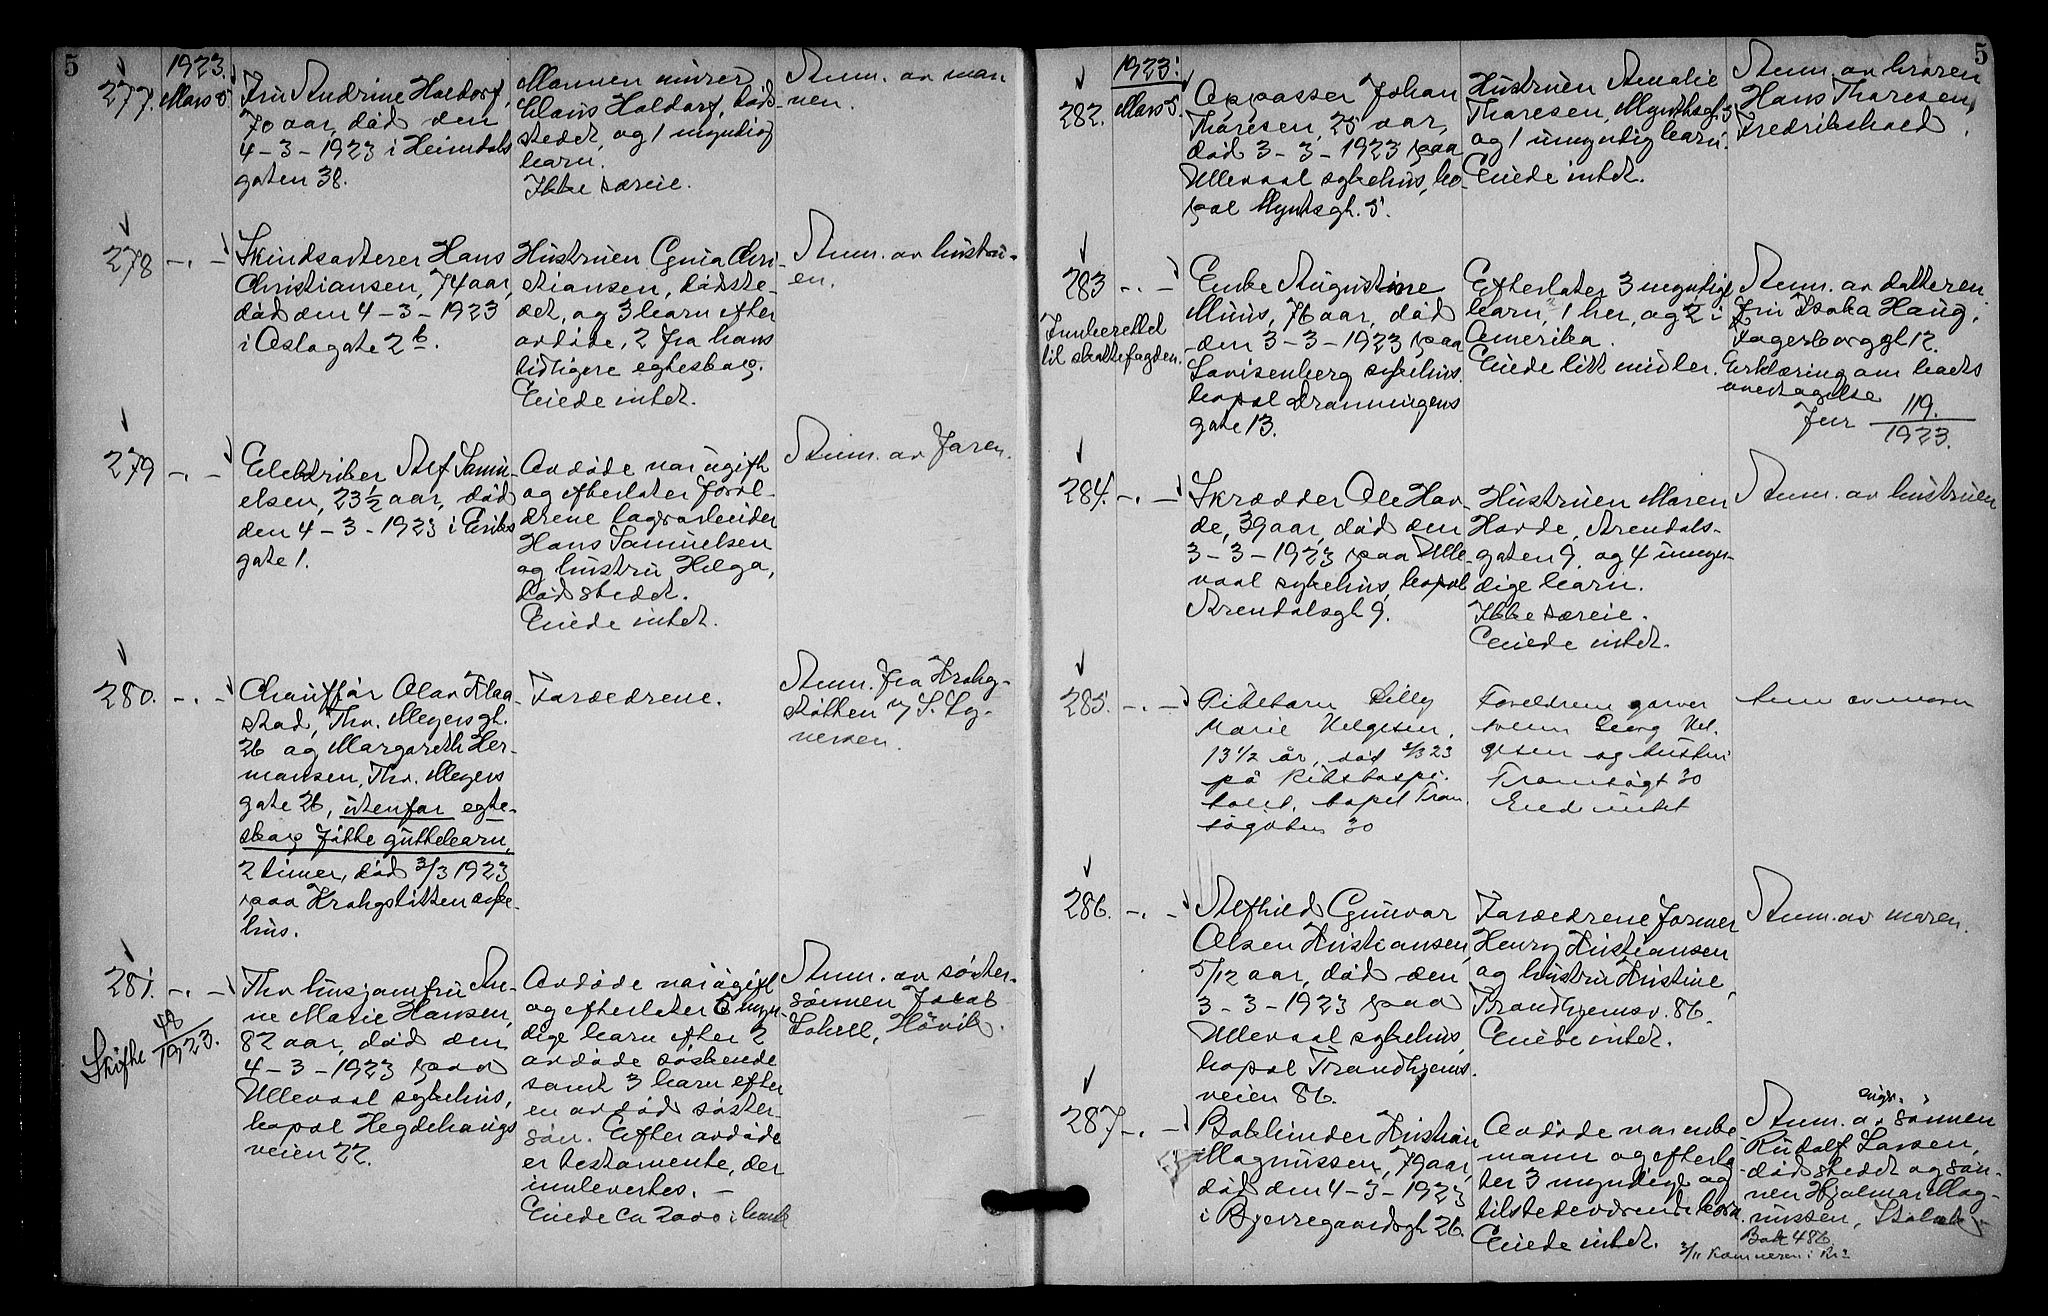 5
1923.
277. Mars 5
Fru Andrine Haldorf,
70 aar, død den
4-3-1923 i Heimdals
gaten 38.
Mannen murer
Claus Haldorf, død-
stedet, og 1 myndig
barn.
Ikke særeie.
Anm. av man
nen.
278 -„-
Skindsorterer Hans
Christiansen, 74 aar,
død den 4-3-1923
i Oslogate 2b.
Hustruen Gunia Chri-
stiansen, dødste-
det, og 3 barn efter
avdøde, 2 fra hans
tidligere egteskap.
Eiede intet.
Anm. av hustru-
en.
279 -„-
Elektriker Alf Samu
elsen, 23½ aar, død
den 4-3-1923 i Eriks
gate 1.
Avdøde var ugift
og efterlater foræl-
drene lagerarbeider
Hans Samuelsen
og hustru Helga,
dødstedet.
Eiede intet.
Anm. av faren.
280. -„-
Chauffør Olav Flaa
stad, Thv. Meyersgt.
26 og Margareth Her-
mansen, Thv. Meyers
gate 26, utenfor egte-
skap fødte guttebarn,
2 timer, død 3/3 1923
paa Krohgstøtten syke-
hus.
Forældrene.
Anm. fra Krohg-
støtten v/ S. Sy-
versen.
281. -„-
Skifte 48/1923.
Fhv husjomfru An-
ne Marie Hansen,
82 aar, død den
4-3-1923 paa
Ullevaal sykehus,
bopæl Hegdehaugs
veien 22.
Avdøde var ugift
og efterlater 5 myn-
dige barn efter 2
avdøde søskende
samt 3 barn efter
en avdød søster-
søn. Efter avdøde
er testamente, der
innleveres. -
Eiede ca 2000 i bank
Anm. av søster-
sønnen Jacob
Høvik.
5
1923.
282. Mars 5.
Oppasser Johan
Thoresen, 25 aar,
død 3-3-1923 paa
Ullevaal sykehus, bo-
pæl Myntsgt. 5.
Hustruen Amalie
Thoresen, Myntsgt. 5
og 1 umyndig barn.
Eiede intet.
Anm. av broren
Hans Thoresen,
Fredrikshald.
283 -„-
Innberettet
til skattefogden.
Enke Augustine
Muus, 76 aar, død
den 3-3-1923 paa
Lovisenberg sykehus.
bopæl Dronningens
gate 13.
Efterlater 3 myndige
barn, 1 her, og 2 i
Amerika.
Eiede litt midler.
Anm. av datteren
Fru Haug,
Fagerborggt 12.
Erklæring om boets
overtagelse
Jnr 119./1923.
284. -„-
Skrædder Ole Hov-
de, 39 aar, død den
3-3-1923 paa Ulle-
vaal sykehus, bopæl
Arendalsgt 9.
Hustruen Maren
Hovde, Arendals-
gaten 9, og 4 umyn-
dige barn.
Ikke særeie.
Eiede intet.
Anm. av hustruen
285. -„-
Pikebarn Lilly
Marie Helgesen,
13 1/2 år, død 4/3 23
på Rikshospi-
talet, bopel Trom
søgaten 30
Foreldrene garver
svenn Georg Hel-
gesen og hustru
Tromsøgt 30
Eied intet
Anm av moren
286. -„-
Alfhild Gunvor
Olsen Kristiansen,
5/12 aar, død den
3-3-1923 paa
Ullevaal sykehus,
bopæl Trondhjems-
veien 86.
Forældrene former
Henry Kristiansen
og hustru Kristine,
Trondhjemsv. 86.
Eiede intet.
Anm. av moren.
287. -„-
Bokbinder Kristian
Magnussen, 79 aar,
død den 4-3-1923
i Bjerregaardsgt 26.
Avdøde var enke
mann og efterla-
ter 3 myndige og
tilstedeværende barn.
Eiede intet.
Anm. av svigersønnen
Rudolf Larsen,
dødstedet og søn-
nen Hjalmar Mag-
nussen,
Boks 486.